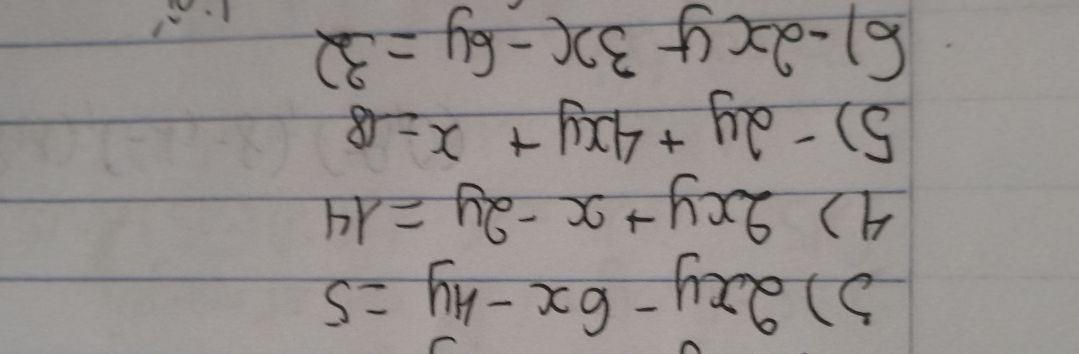 3) 2xy - 6x - 4y = 5
4) 2xy + x - 2y = 14
5) - 2y + 4xy + x = 18
6) - 2xy + 3x - 6y = 32